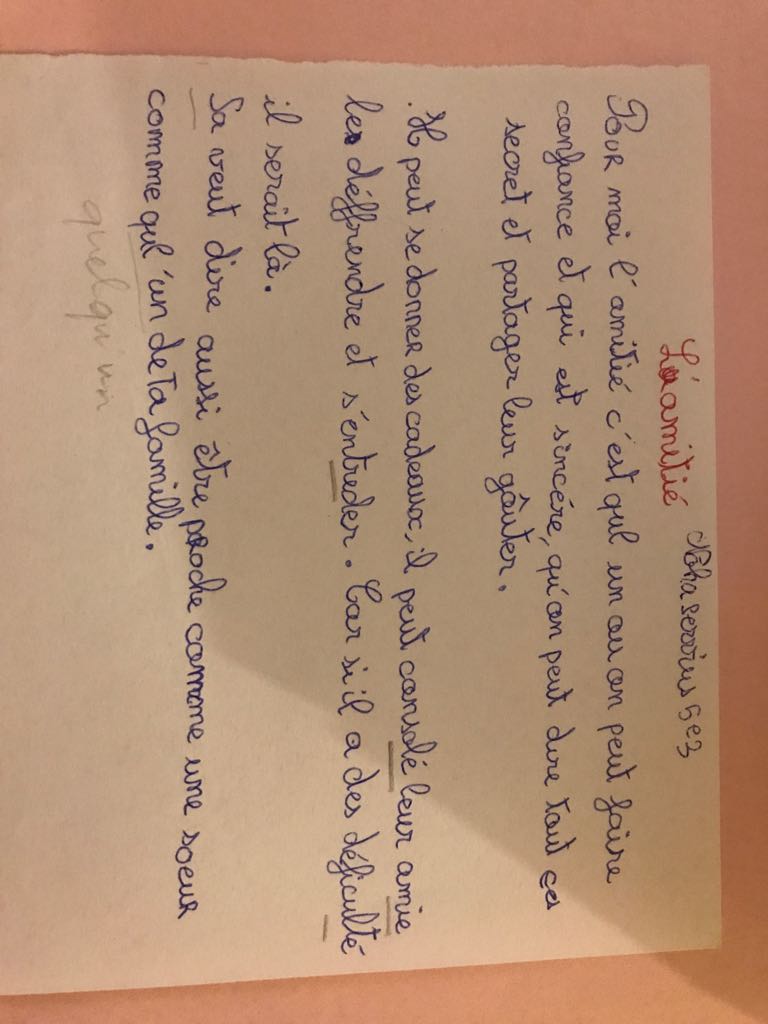 L'amitié
Nohaserrius 5e3
Pour moi l'amitié c'est qul un ou on peut faire
confiance et qui est sincére, qu'on peut dire tout ces
secret et partager leur goûter.
. Il peut se donner des cadeaux, il peut consolé leur amie
les déffrendre et s'entreder. Car si il a des déficulté
il serait là.
Sa veut dire aussi être proche comme une soeur
comme qul'un de ta famille.
quelqu'un